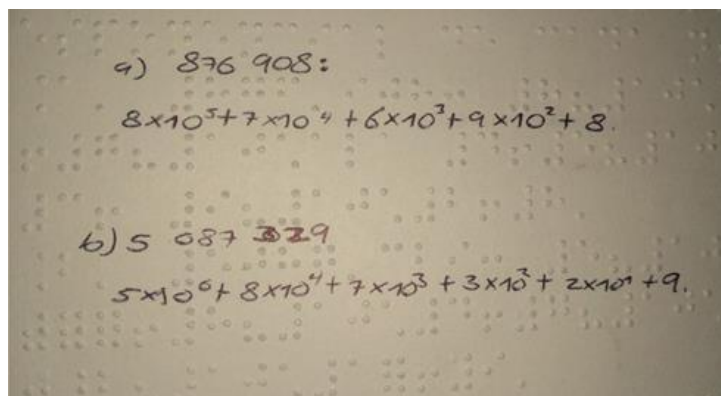 a) 876 908:
8×10⁵+7×10⁴+6×10³+9×10²+8.
b) 5 087 329
5×10⁶+8×10⁴+7×10³+3×10²+2×10¹+9.